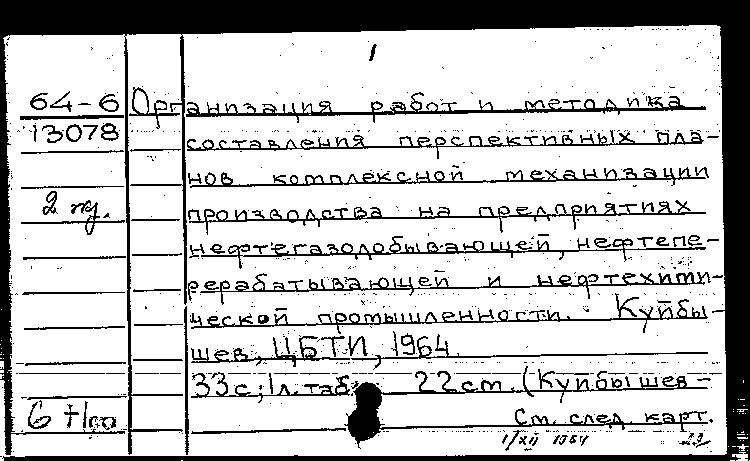 1
64-6 Организация работ и методика
13078 составления перспективных пла-
нов комплексной механизации
2 производства на предприятиях
нефтегазодобывающей, нефтепе-
рерабатывающей и нефтехими-
ческой промышленности. Куйбы-
шев, ЦБТИ, 1964.
33с; 1л. таб. 22см. (Куйбышев-
См. след. карт.
1/XII 1964 29